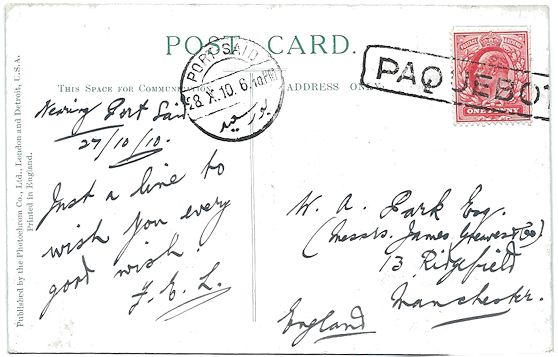 POST CARD.
THIS SPACE FOR COMMUNICATION
ADDRESS ONLY
PORT-SAID
28.X.10. 6
بور سعيد
PAQUEBOT
ONE PENNY
Published by the Photochrom Co., Ltd., London and Detroit, U.S.A.
Printed in England.
Nearing Port Said
27/10/10.
Just a line to
wish you every
good wish.
W. A. Park Esq.
(Messrs. James
13 Ridgefield
Manchester.
England